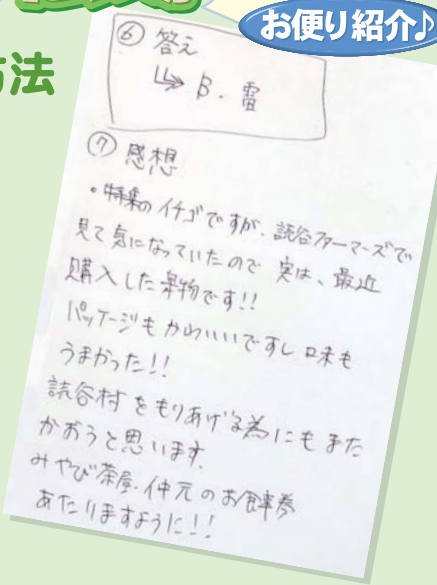 お便り紹介♪
方法
⑥ 答え
↳ B. 雷
⑦ 感想
・特集のイチゴですが、読谷ファーマーズで
見て気になっていたので 実は、最近
購入した果物です!!
パッケージもかわいいですし 味も
うまかった!!
読谷村をもりあげる為にもまた
かおうと思います。
みやび茶屋・仲元のお食事券
あたりますように!!